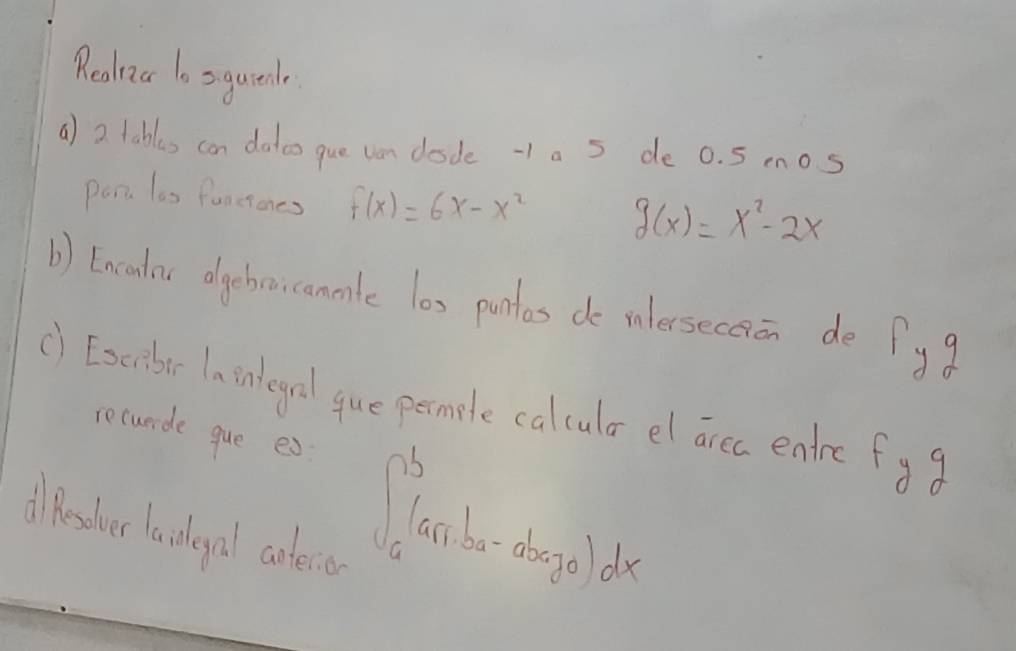 Realizar lo siguiente:
a) 2 tablas con datos que van desde -1 a 5 de 0.5 en 0.5
para las funciones f(x) = 6x - x² g(x) = x² - 2x
b) Encontrar algebraicamente los puntos de intersección de f y g
c) Escribir la integral que permite calcular el área entre f y g
recuerde que es: ∫ₐᵇ (arriba - abajo) dx
d) Resolver la integral anterior